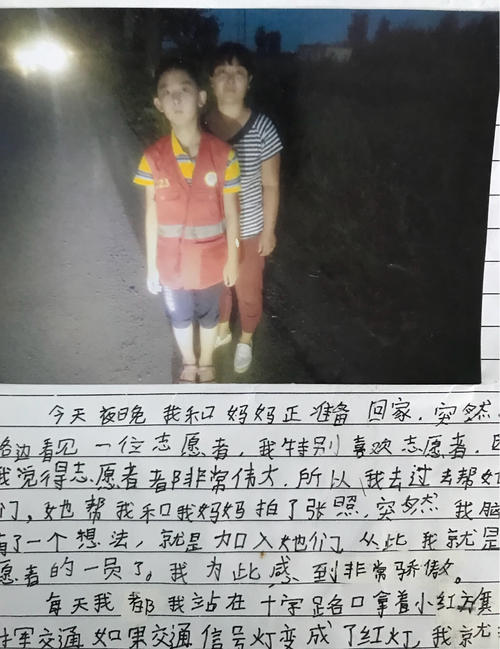 今天夜晚我和妈妈正准备回家.突然
路边看见一位志愿者,我特别喜欢志愿者,因
我觉得志愿者都非常伟大.所以我去过去帮如
们,她帮我和我妈妈拍了张照.突然我脑
有了一个想法,就是加入她们.从此我就是
愿者的一员了。我为此感到非常骄傲。
每天我都我站在十字路口拿着小红旗
挥交通如果交通信号灯变成了红灯,我就